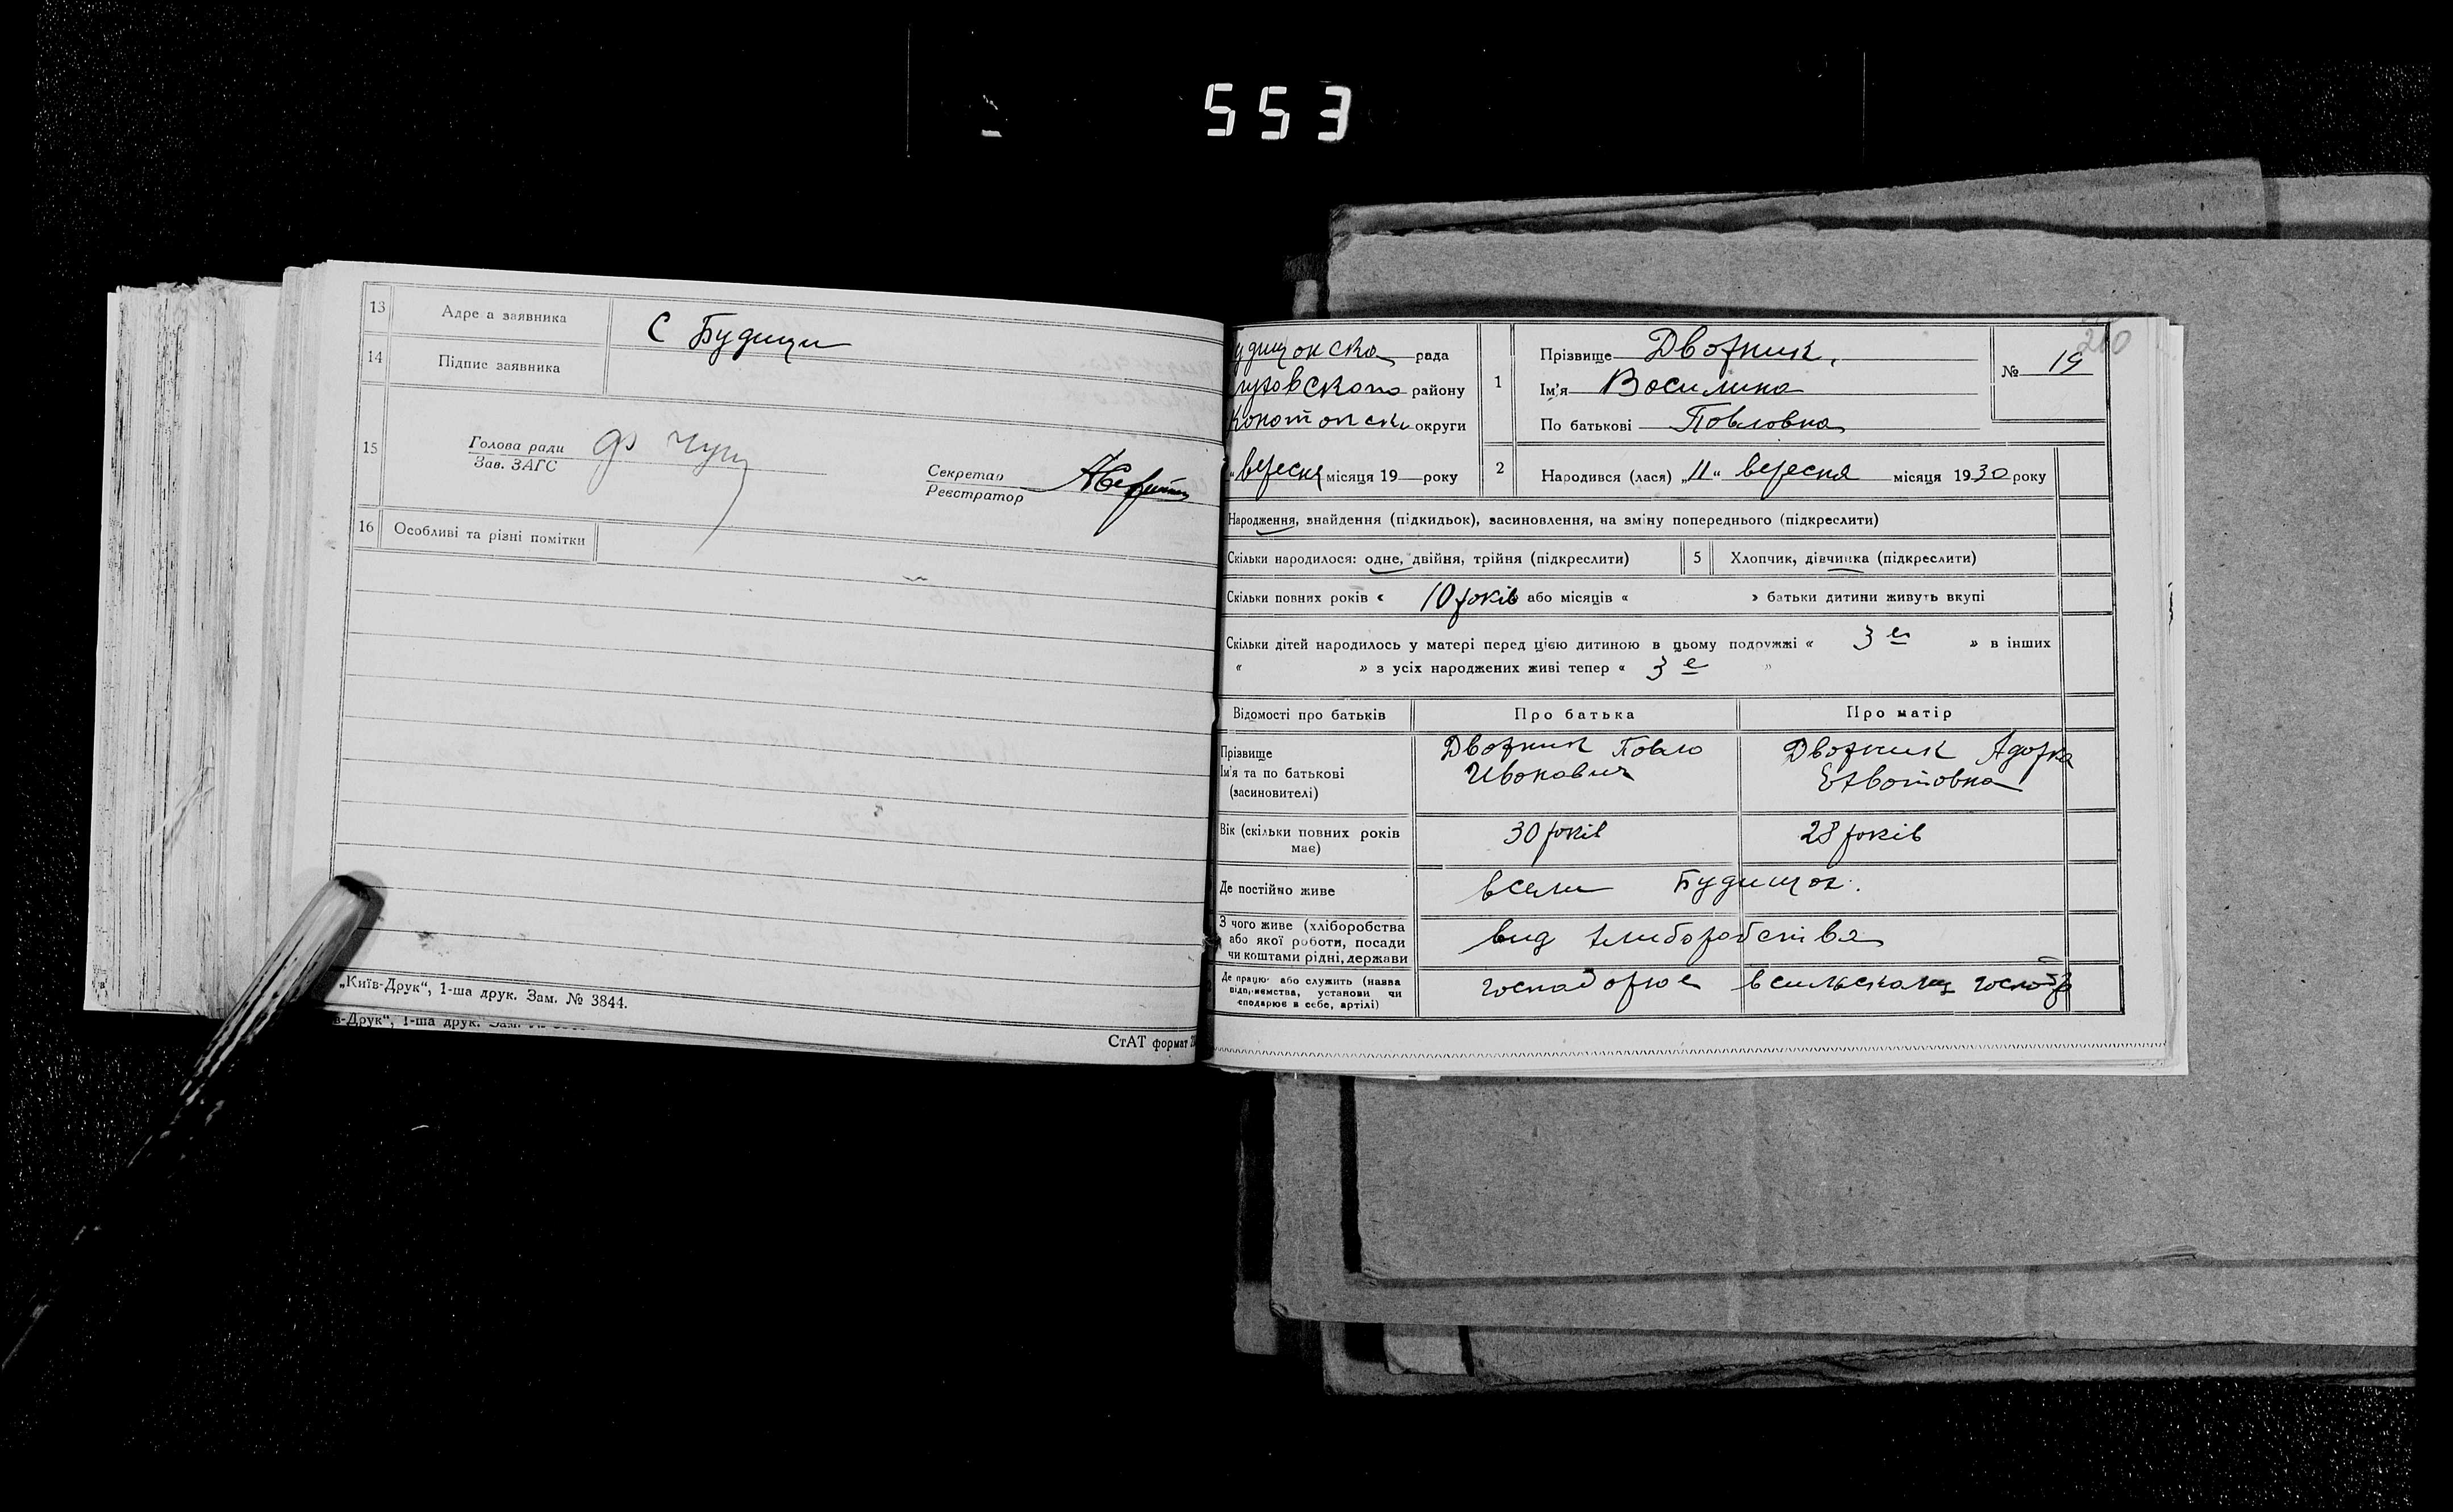 553
13 Адре а заявника С Будищи
14 Підпис заявника
15 Голова ради
Зав. ЗАГС
Секретар
Реєстратор
16 Особливі та різні помітки
„Київ-Друк“, 1-ша друк. Зам. № 3844.
в-Друк“, 1-ша друк. Зам. №
СтАТ формат
210
удищанска рада
луховского району
Конотопски округи
„ вересня місяця 19 року
1 Прізвище Дворник,
Ім'я Василина
По батькові Повловна
№ 19
2 Народився (лася) „11“ вересня місяця 1930 року
Народження, знайдення (підкидьок), васиновлення, на зміну попереднього (підкреслити)
Скільки народилося: одне, двійня, трійня (підкреслити) 5 Хлопчик, дівчинка (підкреслити)
Скільки повних років « 10 років або місяців « » батьки дитини живуть вкупі
Скільки дітей народилось у матері перед цією дитиною в цьому подружжі « 3 е » в інших
« » з усіх народжених живі тепер « 3 е »
Відомості про батьків Про батька Про матір
Прізвище
Ім'я та по батькові
(васиновителі)
Дворник Повло
Ивонович
Дворник
Вік (скільки повних років
має)
30 років 28 років
Де постійно живе всели Будищах.
З чого живе (хліборобства
або якої роботи, посади
чи коштами рідні, держави
вид хлиборобства
Де працює або служить (назва
підприємства, установи чи
сподарює в себе, артілі)
господорюе